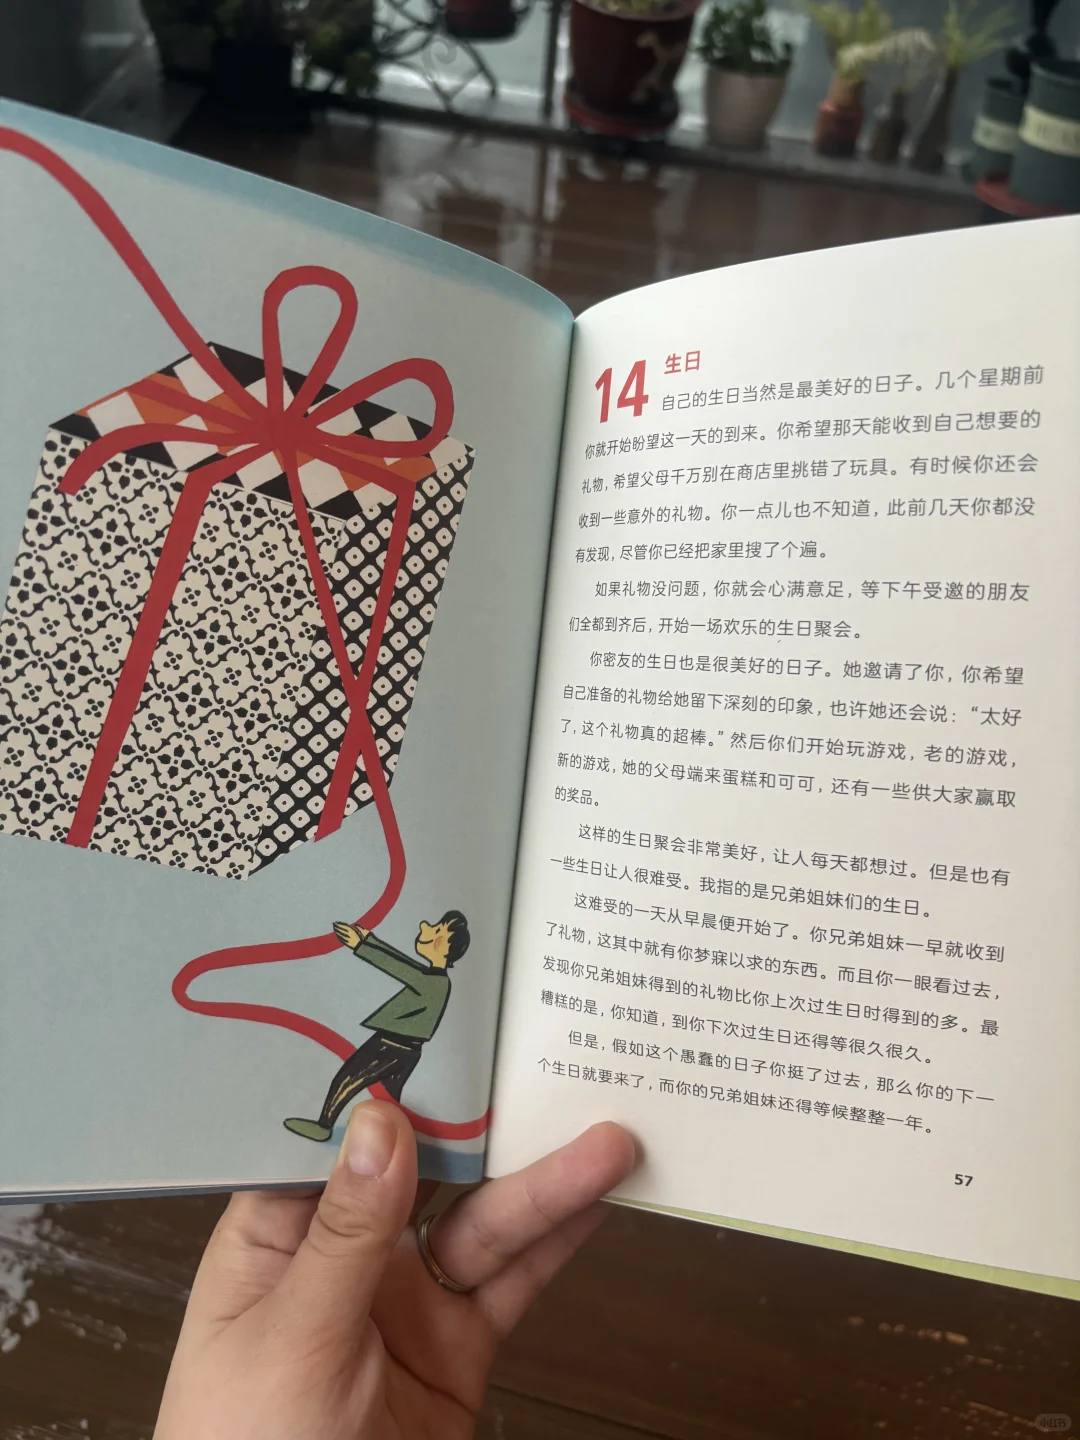 14 生日
自己的生日当然是最美好的日子。几个星期前
你就开始盼望这一天的到来。你希望那天能收到自己想要的
礼物，希望父母千万别在商店里挑错了玩具。有时候你还会
收到一些意外的礼物。你一点儿也不知道，此前几天你都没
有发现，尽管你已经把家里搜了个遍。
如果礼物没问题，你就会心满意足，等下午受邀的朋友
们全都到齐后，开始一场欢乐的生日聚会。
你密友的生日也是很美好的日子。她邀请了你，你希望
自己准备的礼物给她留下深刻的印象，也许她还会说：“太好
了，这个礼物真的超棒。”然后你们开始玩游戏，老的游戏，
新的游戏，她的父母端来蛋糕和可可，还有一些供大家赢取
的奖品。
这样的生日聚会非常美好，让人每天都想过。但是也有
一些生日让人很难受。我指的是兄弟姐妹们的生日。
这难受的一天从早晨便开始了。你兄弟姐妹一早就收到
了礼物，这其中就有你梦寐以求的东西。而且你一眼看过去，
发现你兄弟姐妹得到的礼物比你上次过生日时得到的多。最
糟糕的是，你知道，到你下次过生日还得等很久很久。
但是，假如这个愚蠢的日子你挺了过去，那么你的下一
个生日就要来了，而你的兄弟姐妹还得等候整整一年。
57
小红书